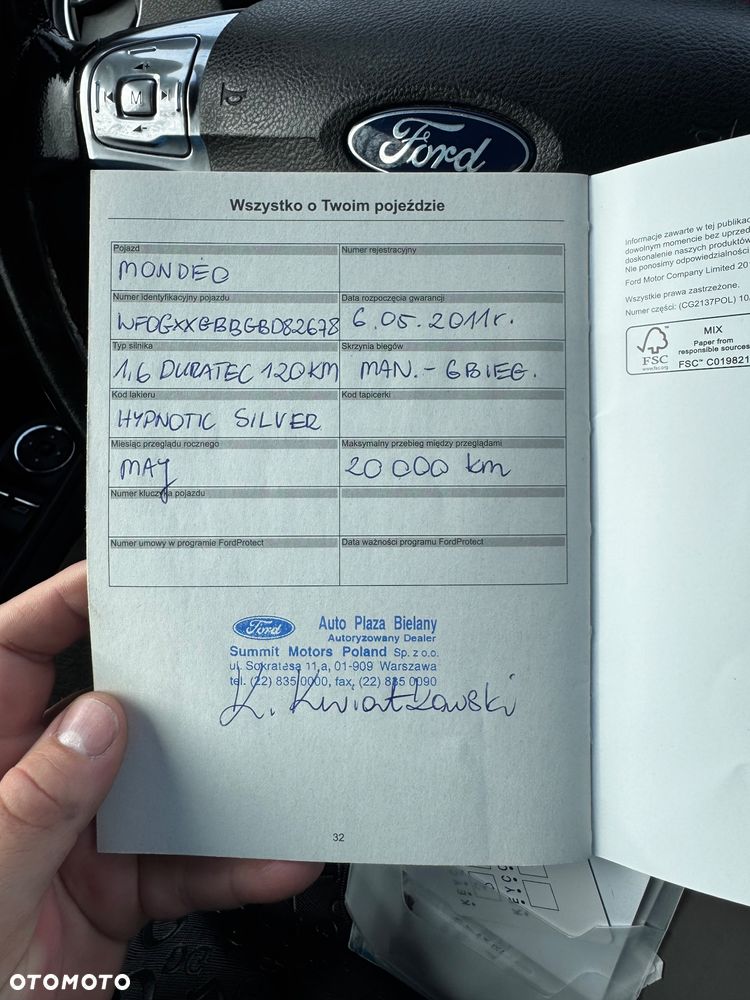 M
Ford
Wszystko o Twoim pojeździe
Pojazd
MONDEO
Numer rejestracyjny
Numer identyfikacyjny pojazdu
WF0GXXGBBGBD82678
Data rozpoczęcia gwarancji
6.05.2011r.
Typ silnika
1,6 DURATEC 120KM
Skrzynia biegów
MAN. - 6BIEG.
Kod lakieru
HYPNOTIC SILVER
Kod tapicerki
Miesiąc przeglądu rocznego
MAY
Maksymalny przebieg między przeglądami
20 000 km
Numer kluczyka pojazdu
Numer umowy w programie FordProtect
Data ważności programu FordProtect
Ford
Auto Plaza Bielany
Autoryzowany Dealer
Summit Motors Poland Sp. z o.o.
ul. Sokratesa 11 a, 01-909 Warszawa
tel. (22) 835 0000, fax. (22) 835 0090
K. Kwiatkowski
32
Informacje zawarte w tej
dowolnym momencie bez
doskonalenie naszych produktów
Nie ponosimy odpowiedzialności
Ford Motor Company Limited
Wszystkie prawa zastrzeżone.
Numer części: (CG2137POL)
FSC
www.fsc.org
MIX
Paper from
responsible sources
FSC™ C019821
KEYC
KEYC
OTOMOTO